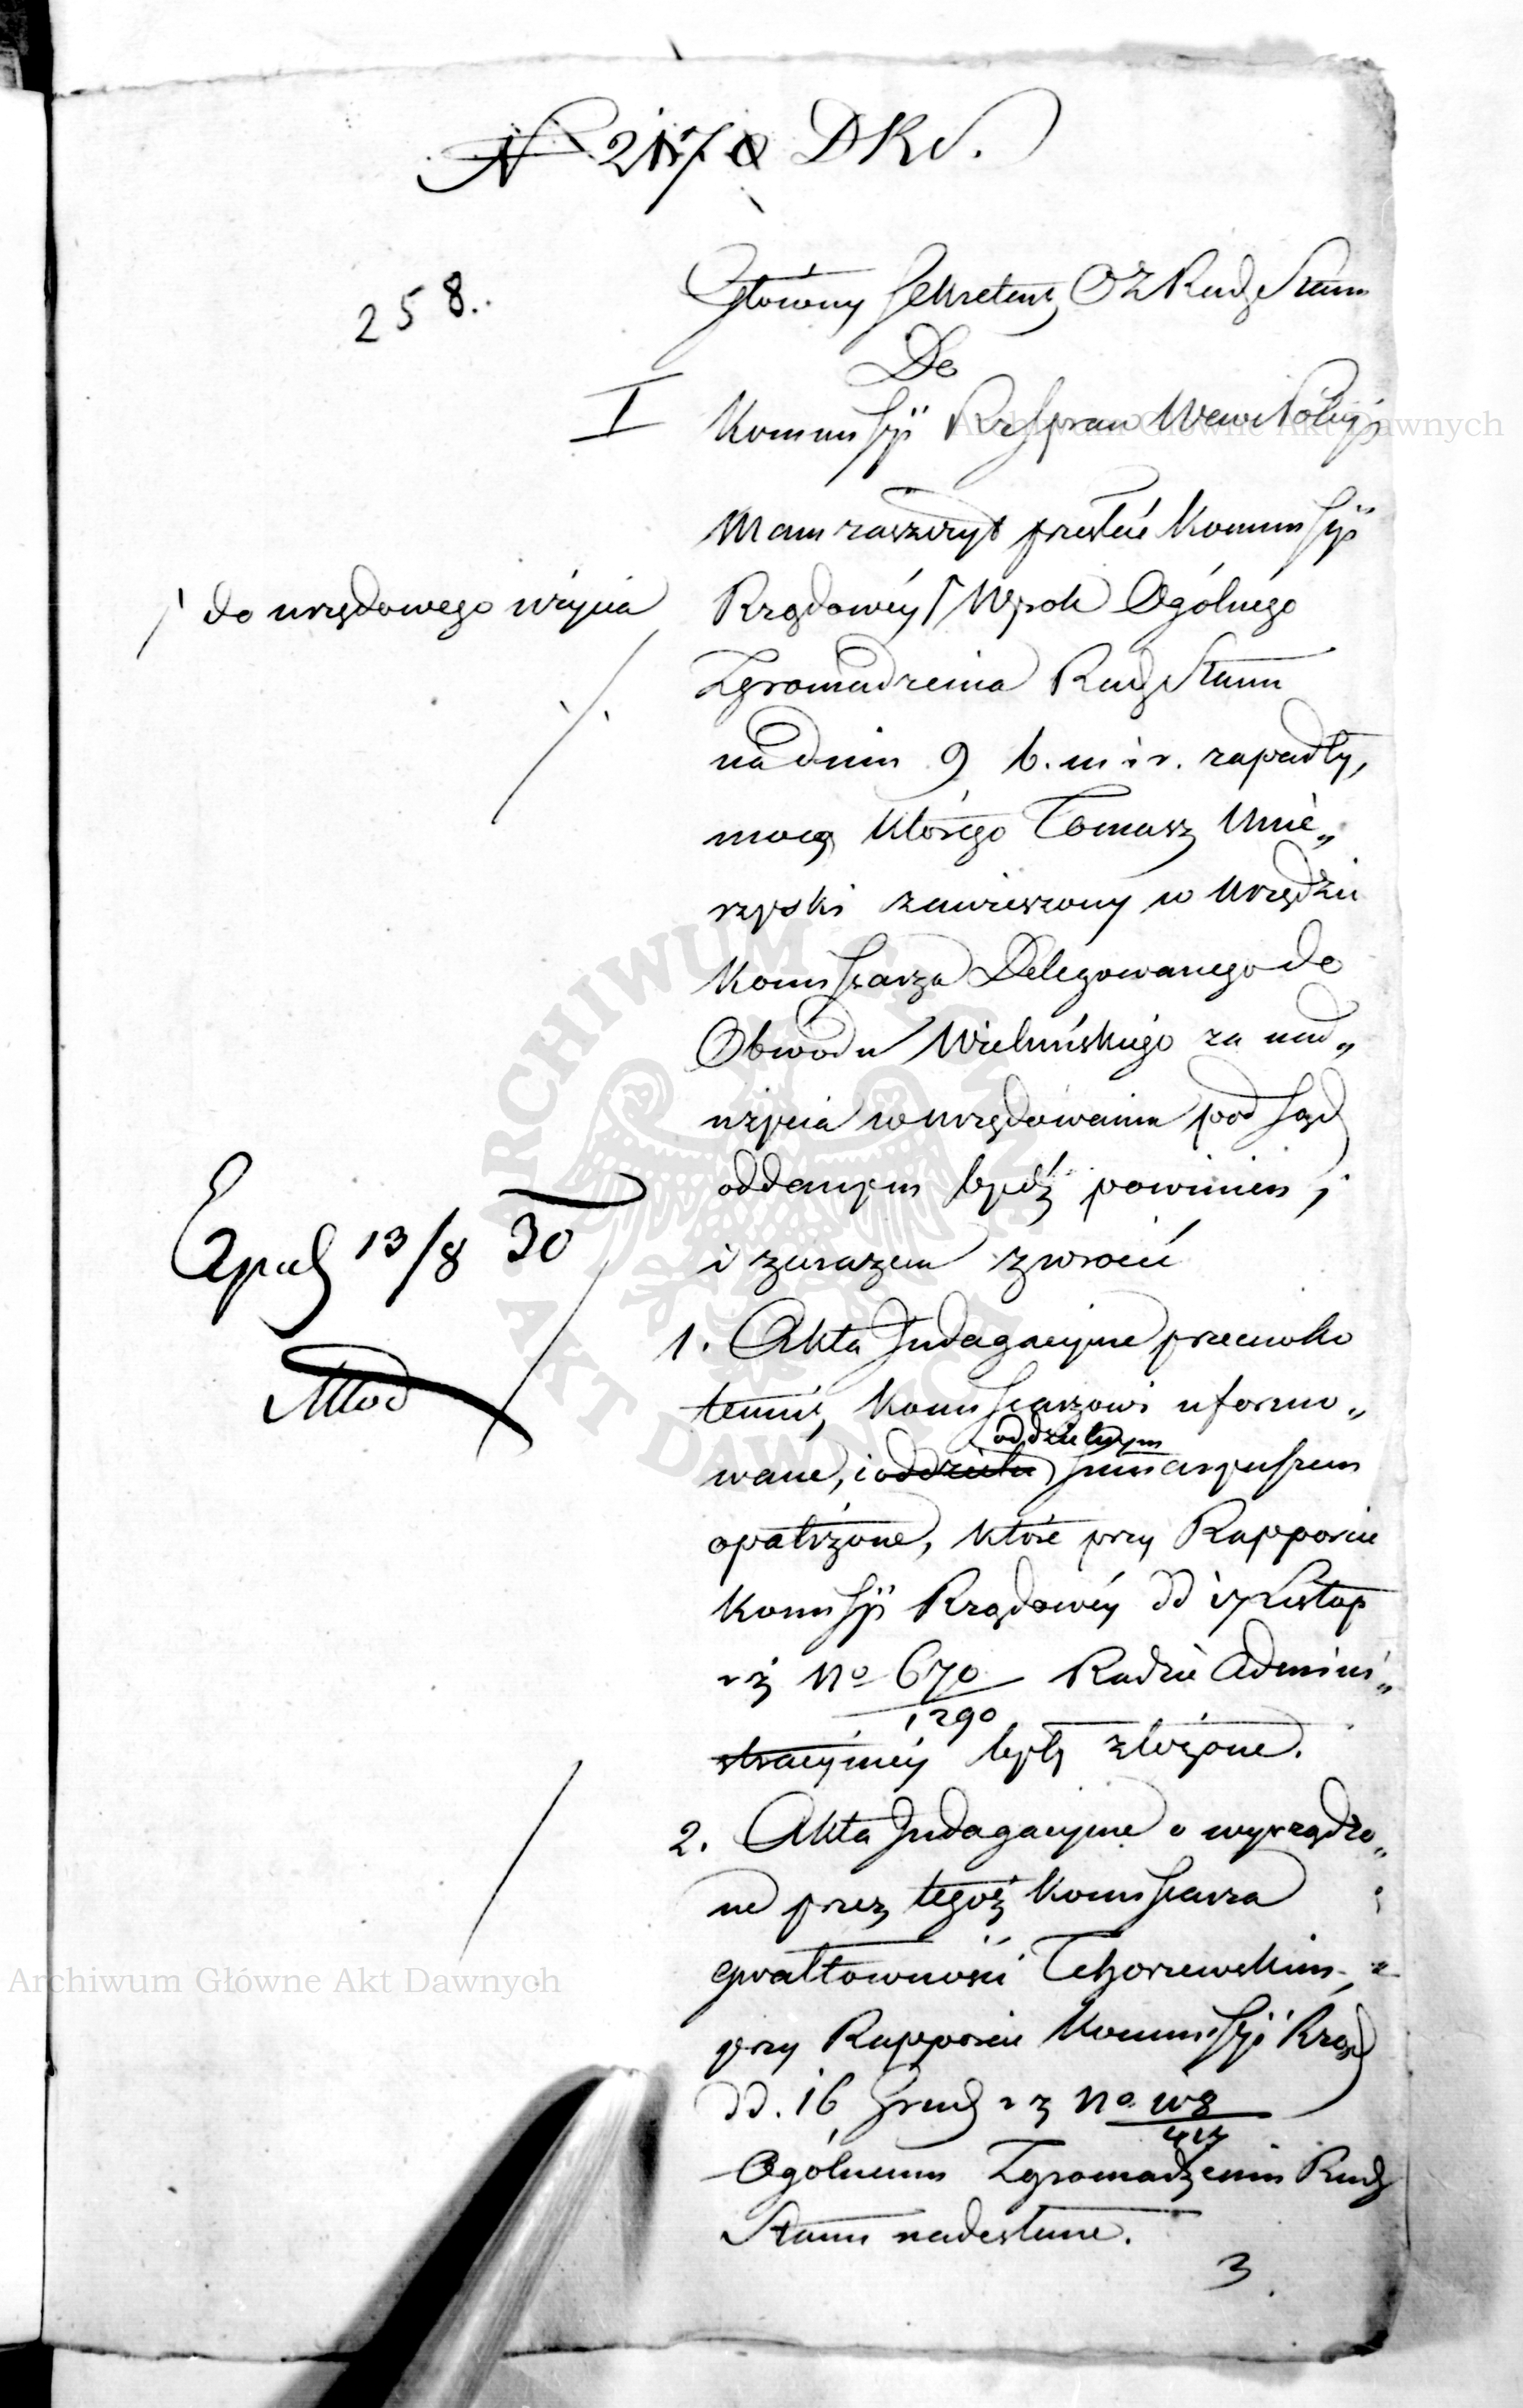 N 2170 DKr.
258.
Główny Sekretarz OZ Rady Stanu
Do
I Kommissyi Rz Spraw Wew i Policyi
Mam zaszczyt przesłać Kommissyi
/ do urzędowego użycia
Rządowéy / Wyrok Ogólnégo
Zgromadzenia Rady Stanu
na dniu 9 b. m i r. zapadły,
mocą którégo Tomasz Umie„
rzyski zawieszony w Urzędzie
Kommissarza Delegowanego do
Obwodu Wieluńskiégo za nad„
użycia w urzędowaniu pod Sąd
oddanym bydź powinien,
i zarazem zwrócić
Exped 13/8 30
1. Akta Indagacyjne przeciwko
temuż Kommissarzowi uformo„
oddzielnym
wane, i oddzielnie Summaryuszem
opatrzone, które przy Rapporcie
Kommissyi Rządowéy dd 17 Listop
r z No 670
1290
Radzie Admini„
stracyjnéy były złożone.
2. Akta Indagacyjne o wyrządzo„
ne przez tegoż Kommissarza
gwałtowności Tchorzewskim,
przy Rapporcie Kommissyi Rząd
dd. 16 Grud r z No
Ogólnemu Zgromadzeniu Rady
Stanu nadesłane.
3.
Archiwum Główne Akt Dawnych
Archiwum Główne Akt Dawnych
ARCHIWUM GŁÓWNE AKT DAWNYCH